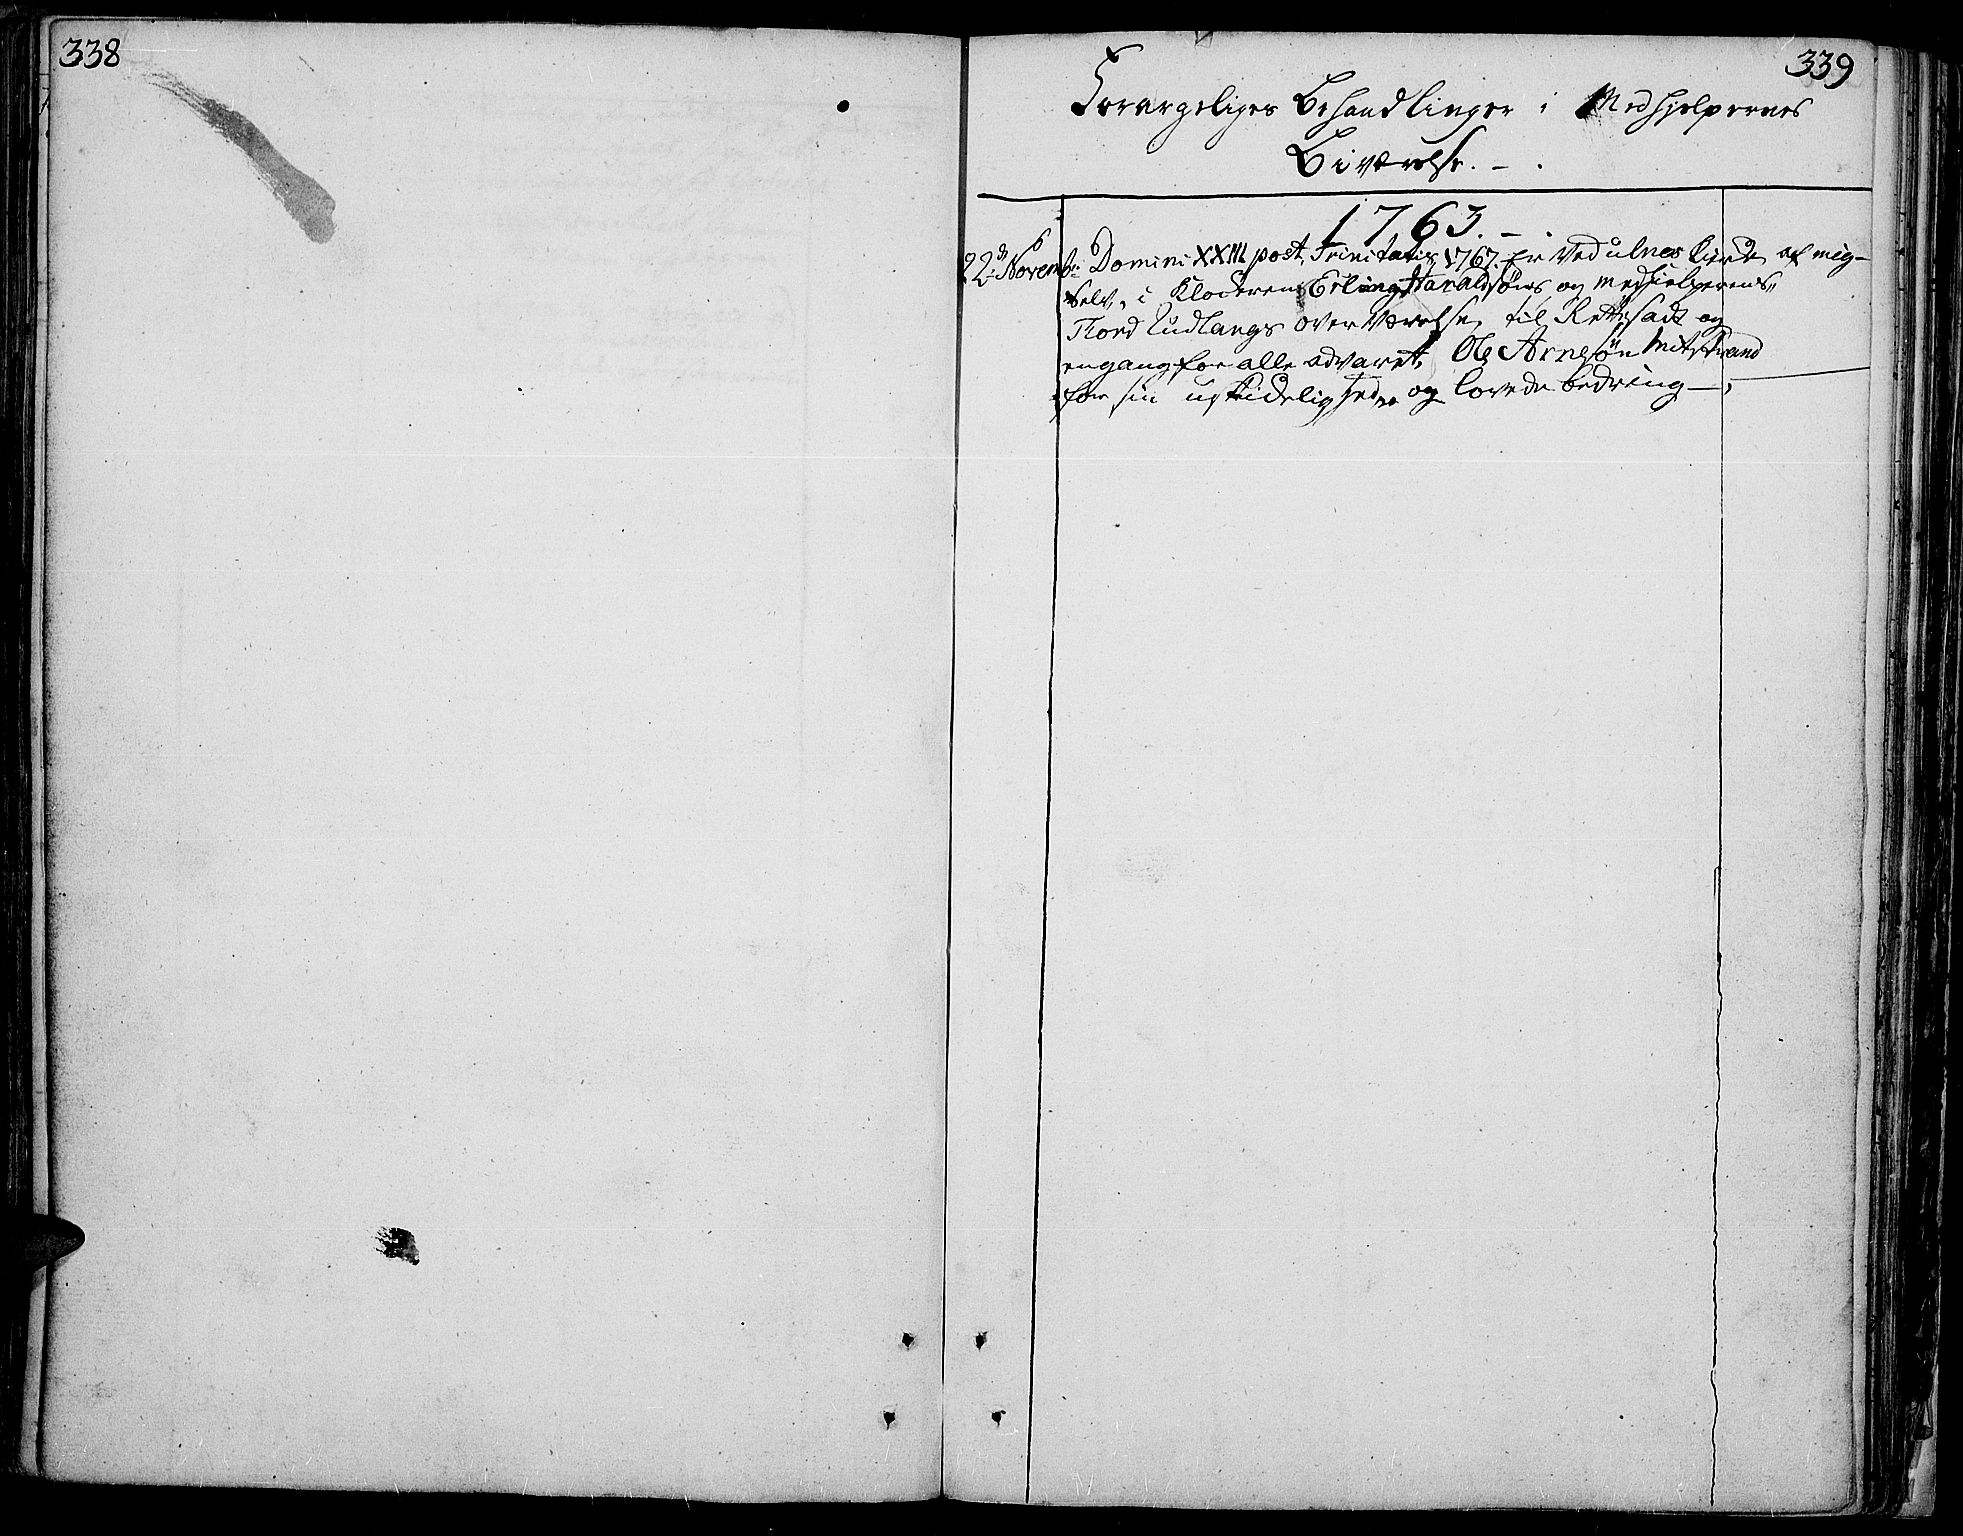 338
339
Forargeliges Behandlinger i Medhjelpernes
Biværelse. - .
1763. - .
22de Novembr: Domini XXIII post Trinitatis 1767. er ved ulnes Kirke af mig-
selv, i Klockeren Erling Haraldsøns og medhielperens
Tiord overværelse, til Rettesadt og
engang for alle advaret, Ole Arnesøn
for sin uskikelighed, og lovede bedring -